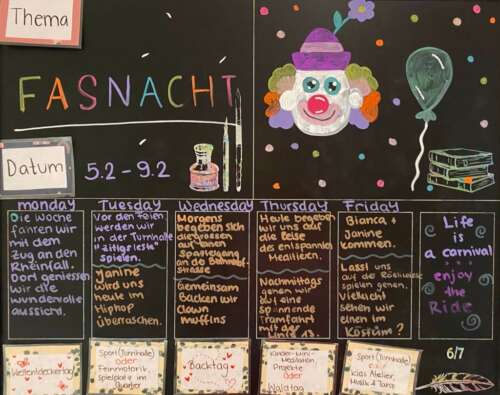 Thema
FASNACHT
Datum
5.2 - 9.2
monday
Die Woche
fahren wir
mit dem
Zug an den
Rheinfall.
Dort geniessen
wir die
wundervolle
aussicht.
Tuesday
Vor den Feien
werden wir
in der Turnhalle
spielen.
Janine
wird uns
heute im
Hiphop
überraschen.
Wednesday
Morgens
begeben sich
die grossen
auf einen
Spaziergang
an die Bahnhof-
strasse
Gemeinsam
Backen wir
Clown
muffins
Thursday
Heute begeben
wir uns auf
die Reise
des entspannten
Meditieren.
Nachmittags
gehen wir
auf eine
spannende
Tramfahrt
mit der
Linie 13.
Friday
Bianca +
Janine
kommen.
Lasst uns
auf die
spielen gehen.
Vielleicht
sehen wir
einen im
Kostüm?
Life
is
a carnival
enjoy
the
Ride
Weltentdeckertag
Sport (Turnhalle)
oder
Feinmotorik,
Spielplatz im
Quartier
Backtag
Kinder-Mini-
Meditation
Projekte
oder
Waldtag
Sport (Turnhalle)
Kids Atelier,
Musik & Tanz
6/7